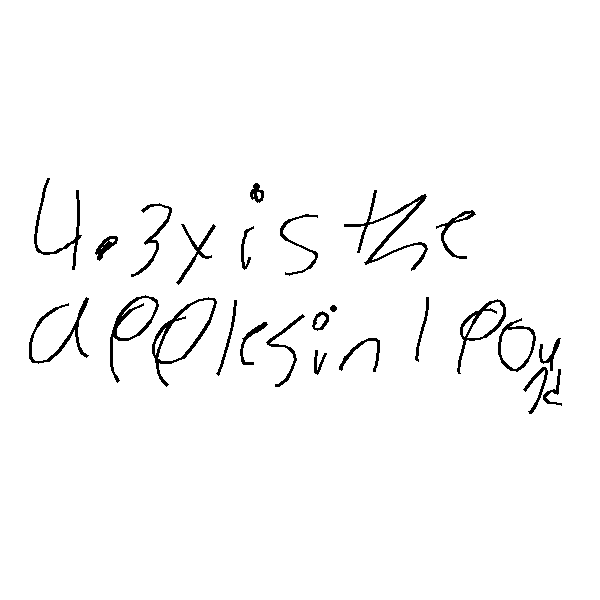 4.3x is the
apples in 1 pound